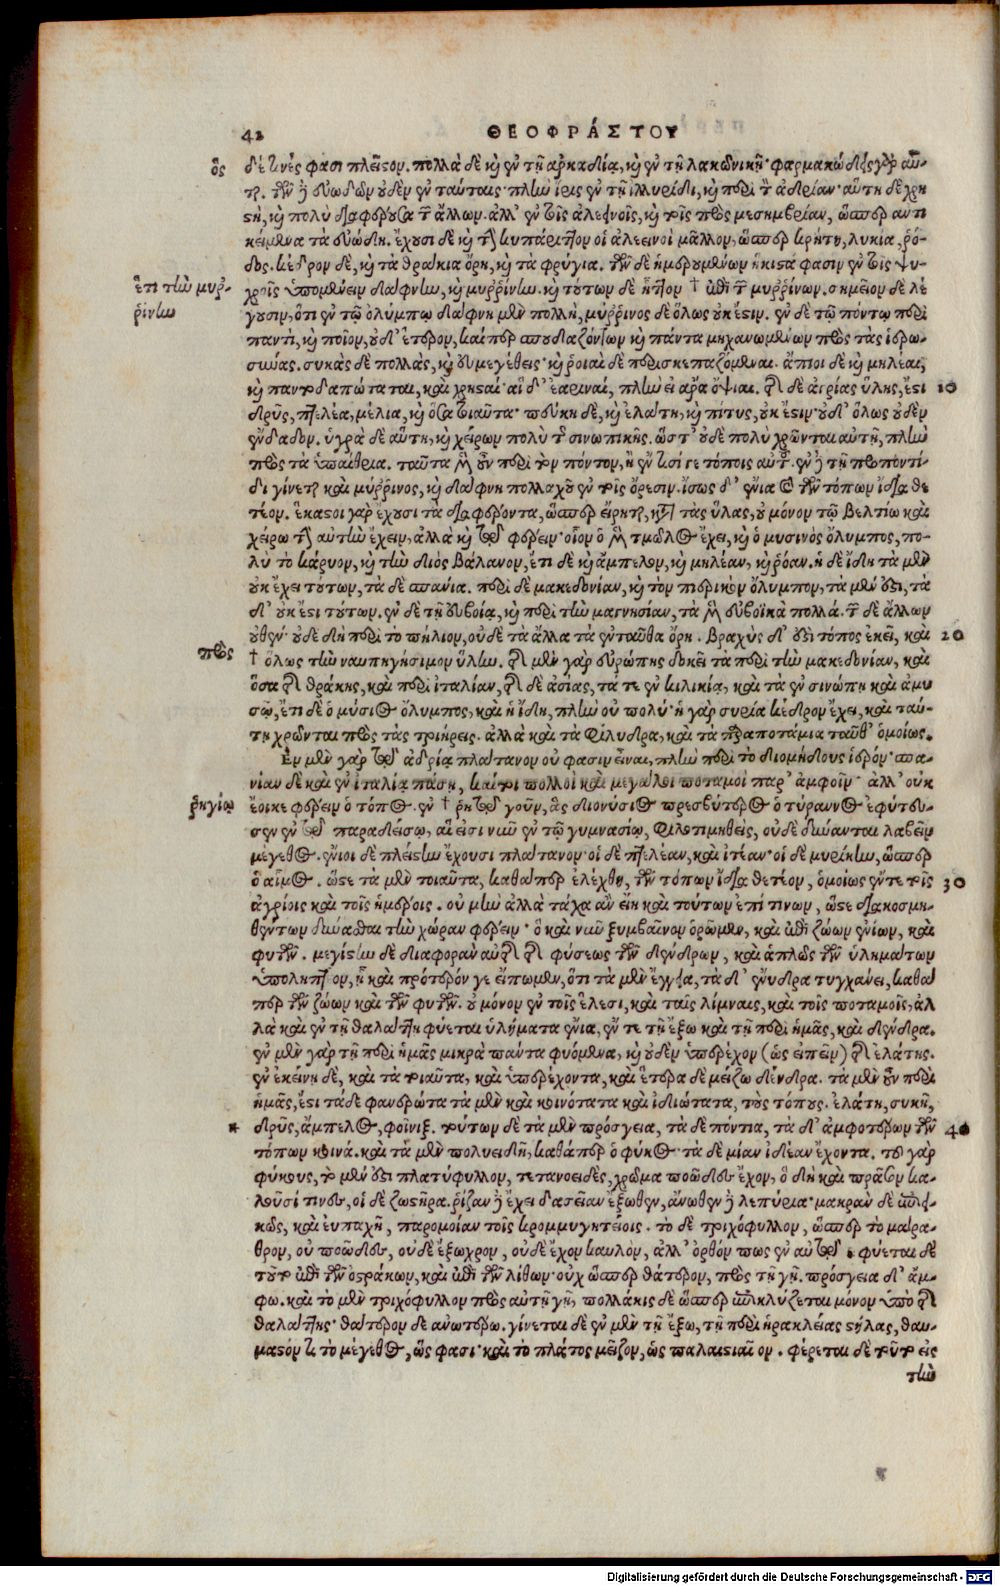 42 ΘΕΟΦΡΆΣΤΟΥ
ὃς δέ τινές φασι πλεῖςον. πολλὰ δὲ κỳ ἐν τῇ ἀρκαδίᾳ, κỳ ἐν τῇ λακωνικῇ· φαρμακώδης γὰρ αὕ-
τη. τῶν δὲ εὐωδῶν οὐδὲν ἐν ταύταις πλὴν ἶρις ἐν τῇ ἰλλυρίδι, κỳ περὶ τὸ ἀδρίαν· αὕτη δὲ χρη
ςὴ, κỳ πολὺ διαφέρουσα τῶν ἄλλων. ἀλλ' ἐν τοῖς ἀλεεινοῖς, κỳ τοῖς πρὸς μεσημβρίαν, ὥσπερ αντι
κείμενα τὰ εὐώδη. ἔχουσι δὲ κỳ τὴν κυπάριττον οἱ ἀλεεινοὶ μᾶλλον, ὥσπερ κρήτη, λυκία, ῥό-
δος. κέδρον δὲ, κỳ τὰ θράκια ὄρη, κỳ τὰ φρύγια. τῶν δὲ ἡμερουμένων ἥκιςά φασιν ἐν τοῖς ψυ-
ἔτι τὴν μυῤ- χροῖς ὑπομένειν δάφνην, κỳ μυῤῥίνην. κỳ τούτων δὲ ἧττον † ἐπὶ τῶν μυῤῥίνων. σημεῖον δὲ λέ
ῥίνην γουσιν, ὅτι ἐν τῷ ὀλύμπῳ δάφνη μὲν πολλὴ, μύῤῥινος δὲ ὅλως οὐκ ἔςιν. ἐν δὲ τῷ πόντῳ περὶ
παντὶ, κỳ ποῖον, οὐδ' ἕτερον, καίπερ σπουδαζόντων κỳ πάντα μηχανωμένων πρὸς τὰς ἱερω-
σύνας. συκὰς δὲ πολλὰς, κỳ εὐμεγέθεις· κỳ ῥοιαὶ δὲ περισκεπαζόμεναι. ἄπιοι δὲ κỳ μηλέαι,
κỳ παντοδαπώταται, καὶ χρηςαί· αἱ δ' ἐαριναὶ, πλὴν εἰ ἄρα ὄψιαι. τῆς δὲ ἀγρίας ὕλης, ἔςι 10
δρῦς, πτελέα, μελία, κỳ ὅσα τοιαῦτα· πεύκη δὲ, κỳ ἐλάτη, κỳ πίτυς, οὐκ ἔςιν· οὐδ' ὅλως οὐδὲν
ἔνδαδον. ὑγρὰ δὲ αὕτη, κỳ χείρων πολὺ τῆς σινωπικῆς. ὥςτ' οὐδὲ πολὺ χρῶνται αὐτῇ, πλὴν
πρὸς τὰ ὑπαίθρια. ταῦτα μὲν οὖν περὶ τὸν πόντον, ἢ ἔν τισί γε τόποις αὐτοῦ. ἐν δὲ τῇ προποντί-
δι γίνεται καὶ μύῤῥινος, κỳ δάφνη πολλαχοῦ ἐν τοῖς ὄρεσιν. ἴσως δ' ἔνια καὶ τῶν τόπων ἴδια θε
τέον. ἕκαςοι γὰρ ἔχουσι τὰ διαφέροντα, ὥσπερ εἴρηται, κατὰ τὰς ὕλας, οὐ μόνον τῷ βελτίω καὶ
χείρω τὴν αὐτὴν ἔχειν, ἀλλὰ κỳ τῷ φέρειν· οἷον ὁ μὲν τμῶλος ἔχει, κỳ ὁ μυσινὸς ὄλυμπος, πο-
λὺ τὸ κάρυον, κỳ τὴν διὸς βάλανον, ἔτι δὲ κỳ ἄμπελον, κỳ μηλέαν, κỳ ῥόαν. ἡ δὲ ἴδη τὰ μὲν
οὐκ ἔχει τούτων, τὰ δὲ σπάνια. περὶ δὲ μακεδονίαν, κỳ τὸν πιερικὸν ὄλυμπον, τὰ μὲν ἔςι, τὰ
δ' οὐκ ἔςι τούτων. ἐν δὲ τῇ εὐβοίᾳ, κỳ περὶ τὴν μαγνησίαν, τὰ μὲν εὐβοϊκὰ πολλά. τῶν δὲ ἄλλων
οὐθέν· οὐδὲ δὴ περὶ τὸ πήλιον, οὐδὲ τὰ ἄλλα τὰ ἐνταῦθα ὄρη. βραχὺς δ' ἐςὶ τόπος ἐκεῖ, καὶ 20
πρὸς † ὅλως τὴν ναυπηγήσιμον ὕλην. τῆς μὲν γὰρ εὐρώπης δοκεῖ τὰ περὶ τὴν μακεδονίαν, καὶ
ὅσα τῆς θράκης, καὶ περὶ ἰταλίαν, τῆς δὲ ἀσίας, τά τε ἐν κιλικίᾳ, καὶ τὰ ἐν σινώπῃ καὶ ἀμι
σῷ, ἔτι δὲ ὁ μύσιος ὄλυμπος, καὶ ἡ ἴδη, πλὴν οὐ πολύ· ἡ γὰρ συρία κέδρον ἔχει, καὶ ταύ-
τῃ χρῶνται πρὸς τὰς τριήρεις. ἀλλὰ καὶ τὰ φίλυδρα, καὶ τὰ παραποτάμια ταῦθ' ὁμοίως.
Ἐν μὲν γὰρ τῷ ἀδρίᾳ πλάτανον οὔ φασιν εἶναι, πλὴν περὶ τὸ διομήδους ἱερόν· σπα-
νίαν δὲ καὶ ἐν ἰταλίᾳ πάσῃ, καίτοι πολλοὶ καὶ μεγάλοι ποταμοὶ παρ' ἀμφοῖν· ἀλλ' οὐκ
ῥηγίῳ ἔοικε φέρειν ὁ τόπος. ἐν † ῥητῷ γοῦν, ἃς διονύσιος πρεσβύτερος ὁ τύραννος ἐφύτευ-
σεν ἐν τῷ παραδείσῳ, αἵ εἰσι νῦν ἐν τῷ γυμνασίῳ, φιλοτιμηθεὶς, οὐδὲ δύνανται λαβεῖν
μέγεθος. ἔνιοι δὲ πλείςην ἔχουσι πλάτανον· οἱ δὲ πτελέαν, καὶ ἰτέαν· οἱ δὲ μυρίκην, ὥσπερ
ὁ αἷμος. ὥςε τὰ μὲν τοιαῦτα, καθάπερ ἐλέχθη, τῶν τόπων ἴδια θετέον, ὁμοίως ἔν τε τοῖς 30
ἀγρίοις καὶ τοῖς ἡμέροις. οὐ μὴν ἀλλὰ τάχα ἂν εἴη καὶ τούτων ἐπί τινων, ὥςε διακοσμη-
θέντων δύνασθαι τὴν χώραν φέρειν· ὃ καὶ νῦν ξυμβαῖνον ὁρῶμεν, καὶ ἐπὶ ζώων ἐνίων, καὶ
φυτῶν. μεγίςην δὲ διαφορὰν αὐτῆς τῆς φύσεως τῶν δένδρων, καὶ ἁπλῶς τῶν ὑλημάτων
ὑποληπτέον, ἣν καὶ πρότερόν γε εἴπωμεν, ὅτι τὰ μὲν ἔγγεια, τὰ δ' ἔνυδρα τυγχάνει, καθά
περ τῶν ζώων καὶ τῶν φυτῶν. οὐ μόνον ἐν τοῖς ἕλεσι, καὶ ταῖς λίμναις, καὶ τοῖς ποταμοῖς, ἀλ
λὰ καὶ ἐν τῇ θαλάττῃ φύεται ὑλήματα ἔνια, ἔν τε τῇ ἔξω καὶ τῇ περὶ ἡμᾶς, καὶ δένδρα.
ἐν μὲν γὰρ τῇ περὶ ἡμᾶς μικρὰ πάντα φυόμενα, κỳ οὐδὲν ὑπερέχον (ὡς εἰπεῖν) τῆς ἐλάτης.
ἐν ἐκείνῃ δὲ, καὶ τὰ τοιαῦτα, καὶ ὑπερέχοντα, καὶ ἕτερα δὲ μείζω δένδρα. τὰ μὲν οὖν περὶ
ἡμᾶς, ἔςι τάδε φανερώτατα μὲν καὶ κοινότατα καὶ ἰδιώτατα, τοὺς τόπους. ἐλάτη, συκῆ,
* δρῦς, ἄμπελος, φοῖνιξ. τούτων δὲ τὰ μὲν πρόσγεια, τὰ δὲ πόντια, τὰ δ' ἀμφοτέρων τῶν 40
τόπων κοινά. καὶ τὰ μὲν πολυειδῆ, καθάπερ ὁ φῦκος· τὰ δὲ μίαν ἰδέαν ἔχοντα. τοῦ γὰρ
φύκους, τὸ μέν ἐςι πλατύφυλλον, τετανοειδὲς, χρῶμα ποῶδες ἔχον, ὃ δὴ καὶ πράσον κα-
λοῦσί τινες, οἱ δὲ ζωςῆρα. ῥίζαν δὲ ἔχει δασεῖαν ἔξωθεν, ἄνωθεν δὲ λεπύρια· μακρὰν δὲ ἐπιει-
κῶς, καὶ εὐπαχῆ, παρομοίαν τοῖς κρομμυογητείοις. τὸ δὲ τριχόφυλλον, ὥσπερ τὸ μάρα-
θρον, οὐ ποῶδες, οὐδὲ ἔξωχρον, οὐδὲ ἔχον καυλὸν, ἀλλ' ὀρθόν πως ἐν αὑτῷ. φύεται δὲ
τοῦτο ἐπὶ τῶν ὀςράκων, καὶ ἐπὶ τῶν λίθων· οὐχ ὥσπερ θάτερον, πρὸς τῇ γῇ. πρόσγεια δ' ἄμ-
φω. καὶ τὸ μὲν τριχόφυλλον πρὸς αὐτῇ γῇ, πολλάκις δὲ ὥσπερ ἐπικλύζεται μόνον ὑπὸ τῆς
θαλάττης· θάτερον δὲ ἀνωτέρω. γίνεται δὲ ἐν μὲν τῇ ἔξω, τῇ περὶ ἡρακλέας ςήλας, θαυ-
μαςόν τι τὸ μέγεθος, ὥς φασι· καὶ τὸ πλάτος μεῖζον, ὡς παλαιςιαῖον. φέρεται δὲ τοῦτο εἰς
τὴν
Digitalisierung gefördert durch die Deutsche Forschungsgemeinschaft - DFG